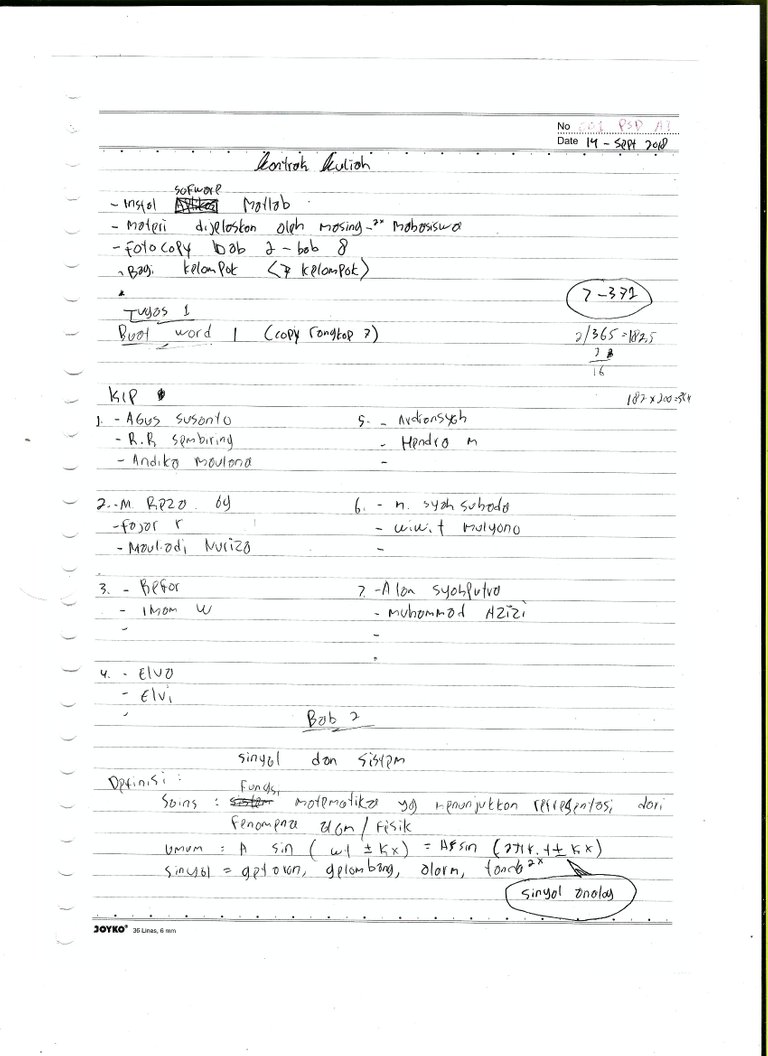 No PSD A1
Date 14 - Sept 2018
Kontrak Kuliah
sofware
- Instal Matlab
- Materi dijelaskan oleh masing-2x mahasiswa
- Fotocopy bab 2 - bab 8
- Bagi kelompok (7 kelompok)
7 - 371
Tugas 1
Buat word 1 (copy rangkap 7)
2/365 = 182,5
16
Klp
1. - Agus Susanto
- R.R Sembiring
- Andika Maulana
2. - M Reza
- Fajar r
- Mauladi Nuriza
3. - Befar
- Imam W
-
4. - Elva
- Elvi
5. - Ardiansyah
- Hendra M
-
6. - M. Syah Subada
- Wiwit Mulyono
-
7. - Alan Syahputra
- Muhammad Azizi
-
Bab 2
Sinyal dan Sistem
Definisi :
Fungsi
Sains : sistem matematika yg menunjukkan representasi dari
Fenomena alam / Fisik
Umum : A sin (wt ± kx) = A sin (2πf.t ± kx)
Sinyal = getaran, gelombang, alarm, tanda 2x
Sinyal analog
JOYKO 36 Lines, 6 mm